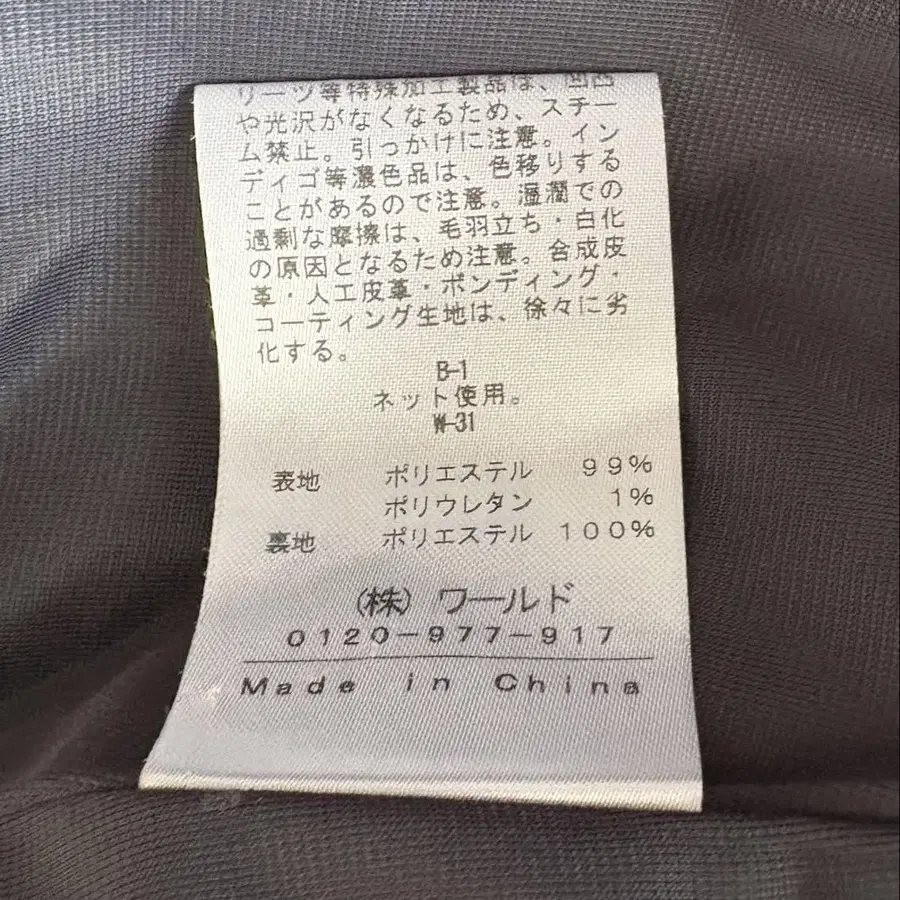 リーツ等特殊加工製品は、凹凸
や光沢がなくなるため、スチー
ム禁止。引っかけに注意。イン
ディゴ等濃色品は、色移りする
ことがあるので注意。湿潤での
過剰な摩擦は、毛羽立ち・白化
の原因となるため注意。合成皮
革・人工皮革・ボンディング・
コーティング生地は、徐々に劣
化する。
B-1
ネット使用。
W-31
表地 ポリエステル 99%
ポリウレタン 1%
裏地 ポリエステル 100%
(株) ワールド
0120-977-917
Made in China